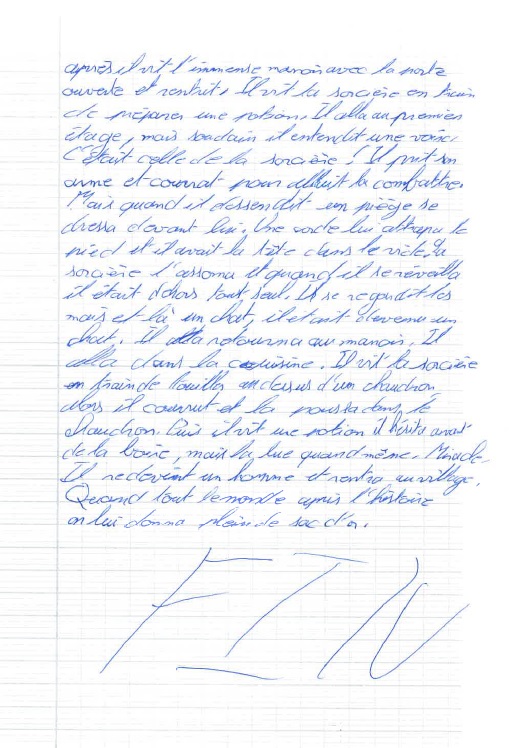 après il vit l'immense manoir avec la porte
ouverte et rentrit. Il vit la sorcière en train
de préparer une potion. Il alla au premier
étage, mais soudain il entendit une voix.
C'était celle de la sorcière ! Il prit son
arme et courrut pour la combattre.
Mais quand il dessendit un piège se
dressa devant lui. Une corde lui attrapa le
pied et il avait la tête dans le vide. La
sorcière l'assoma et quand il se réveilla
il était dehors tout seul. Il se regardit les
mais et là un chat, il était devenu un
chat. Il retourna au manoir. Il
alla dans la cuisine. Il vit la sorcière
en train de au dessus d'un chaudron
alors il courrut et la poussa dans le
chaudron. Puis il vit une potion il hésita avant
de la boire, mais la bue quand même. Miracle.
Il redevint un homme et rentra au village.
Quand tout le monde apris l'histoire
on lui donna plein de sac d'or.
FIN